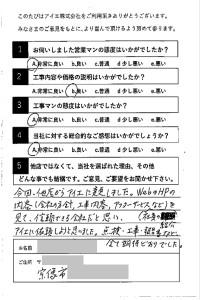 このたびはアイエ株式会社をご利用頂きありがとうございます。
みなさまのご意見をもとに、より喜んで頂けるよう努めて参ります。
1 お伺いしました営業マンの態度はいかがでしたか?
A.非常に良い b.良い c.普通 d.少し悪い e.悪い
2 工事内容や価格の説明はいかがでしたか?
A.非常に良い b.良い c.普通 d.少し悪い e.悪い
3 工事マンの態度はいかがでしたか?
A.非常に良い b.良い c.普通 d.少し悪い e.悪い
4 当社に対する総合的なご感想はいかがでしょうか?
A.非常に良い b.良い c.普通 d.少し悪い e.悪い
5 他店ではなくて、当社を選ばれた理由、その他
どんな事でも結構です。ご意見、ご要望をお聞かせ下さい。
今回、他店からアイエに変更しました。WebのHPの
内容(会社の方針、工事内容、アフターサービスなど)を
見て、信頼できる会社だと思い、
アイエに依頼しようと思いました。点検・工事・
全て期待どおりでした。
お名前
ご住所 〒
宗像市